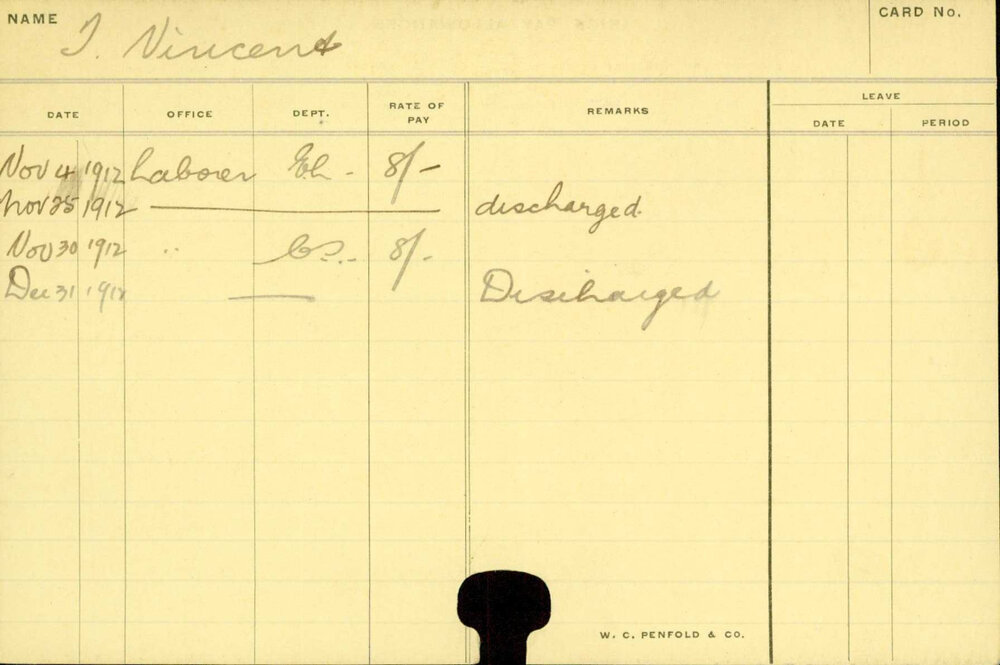 NAME T. Vincent CARD No.
LEAVE
DATE OFFICE DEPT. RATE OF PAY REMARKS DATE PERIOD
Nov 4 1912 Laborer 8/-
Nov 25 1912 discharged.
Nov 30 1912 " 8/-
Dec 31 1912 Discharged
W. C. PENFOLD & CO.